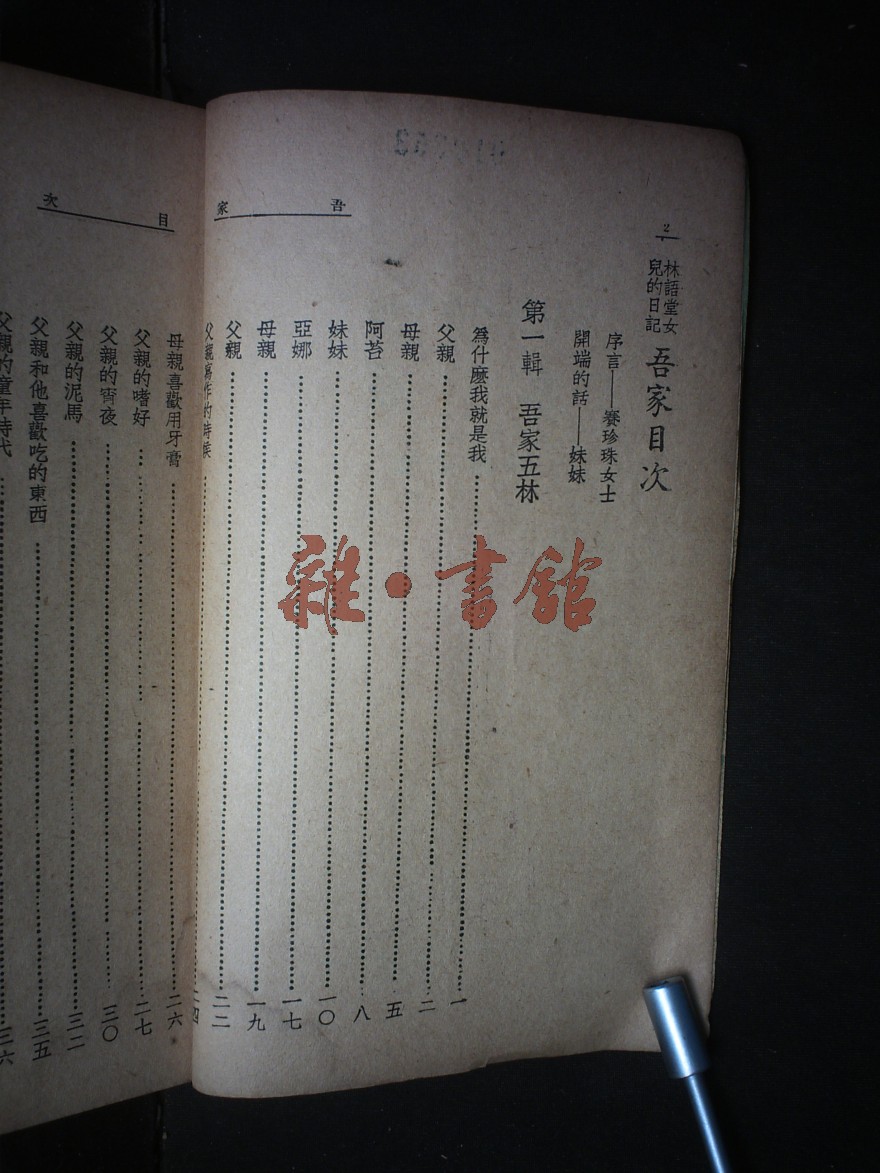 2
林語堂女
兒的日記
吾家目次
序言——賽珍珠女士
開端的話——妹妹
第一輯 吾家五林
爲什麼我就是我 一
父親 二
母親 五
阿苔 八
妹妹 一〇
亞娜 一七
母親 一九
父親 二二
父親寫作的時候 二四
吾家
目次
母親喜歡用牙膏 二六
父親的嗜好 二七
父親的宵夜 三〇
父親的泥馬 三二
父親和他喜歡吃的東西 三五
父親的童年時代 三六
雜·書館